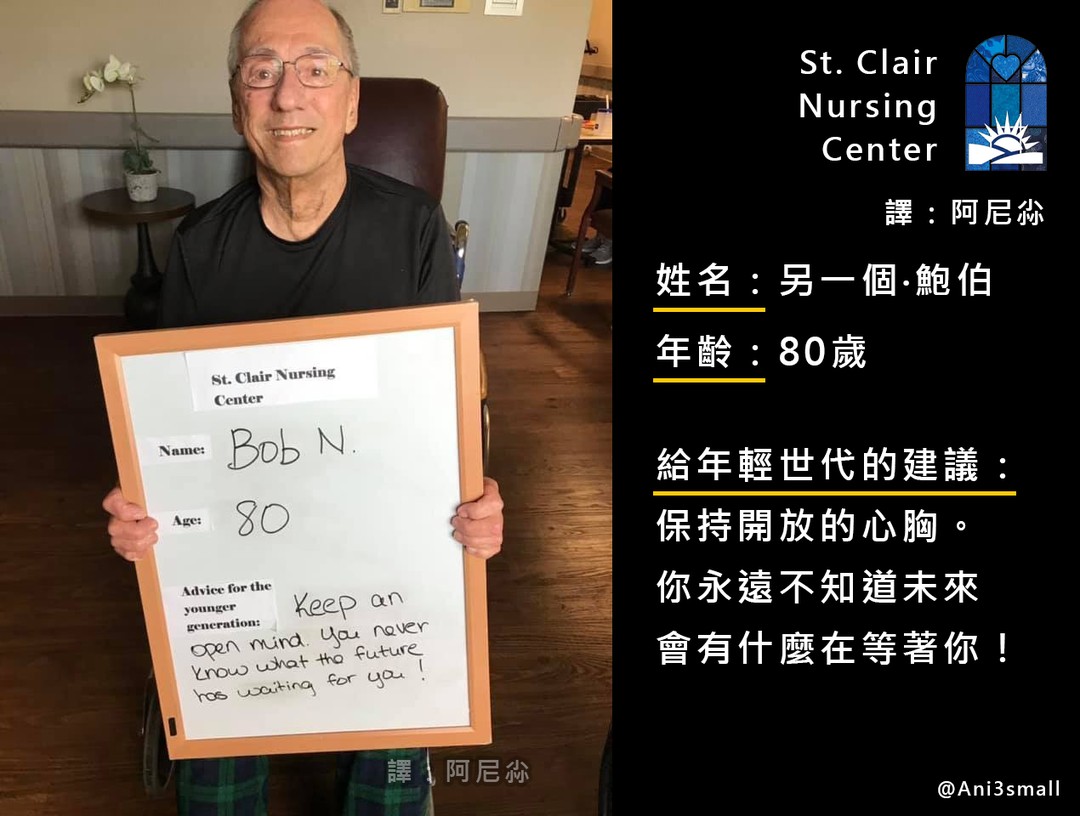 St. Clair Nursing
Center
Name: Bob N.
Age: 80
Advice for the
younger
generation: Keep an
open mind. You never
know what the future
has waiting for you!
譯：阿尼尛
St. Clair
Nursing
Center
譯：阿尼尛
姓名：另一個·鮑伯
年齡：80歲
給年輕世代的建議：
保持開放的心胸。
你永遠不知道未來
會有什麼在等著你！
@Ani3small